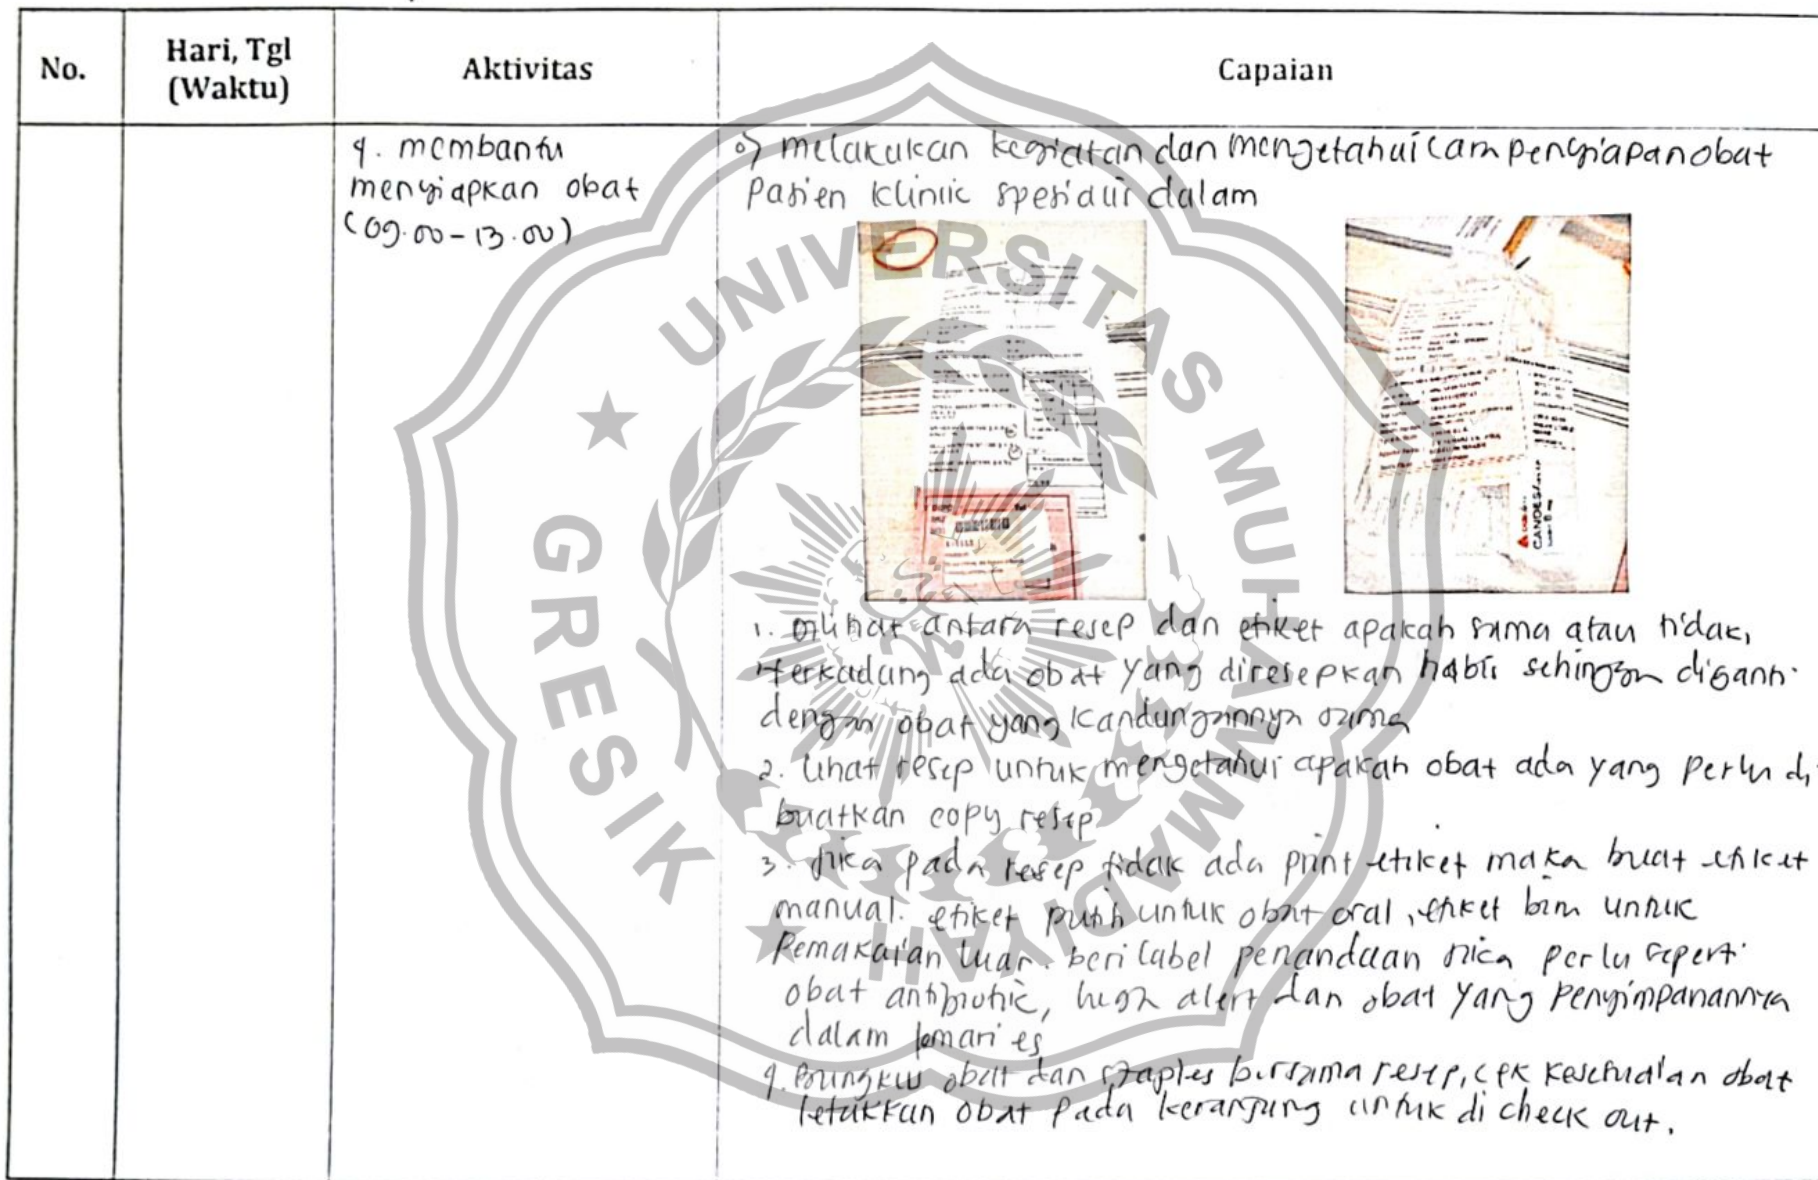 No.
Hari, Tgl
(Waktu)
Aktivitas
Capaian
4. membantu
menyiapkan obat
(09.00-13.00)
melakukan kegiatan dan mengetahui cara penyiapan obat
Pasien klinik spesialis dalam
1. dilihat antara resep dan etiket apakah sama atau tidak,
terkadang ada obat yang diresepkan habis sehingga diganti
dengan obat yang kandungannya sama
2. Lihat resep untuk mengetahui apakah obat ada yang perlu di
buatkan copy resep
3. Jika pada resep tidak ada print etiket maka buat etiket
manual. etiket putih untuk obat oral, etiket biru untuk
Pemakaian luar. beri label penandaan jika perlu seperti
obat antibiotic, high alert dan obat yang penyimpanannya
dalam lemari es
4. Bungkus obat dan staples bersama resep, cek kesesuaian obat
letakkan obat pada keranjang untuk di check out.
UNIVERSITAS MUHAMMADIYAH
GRESIK